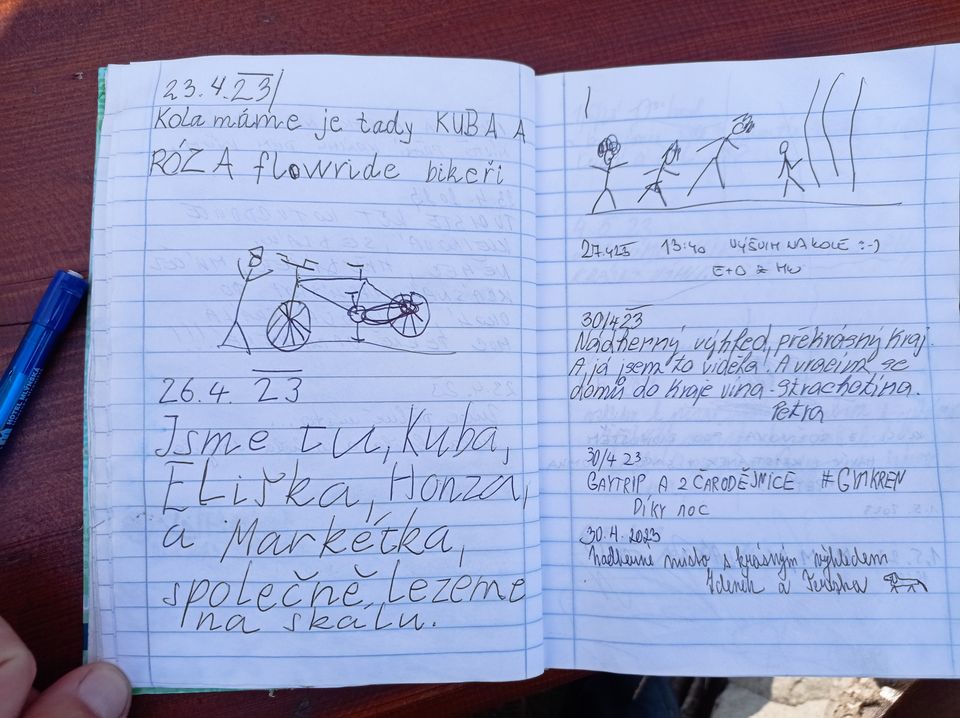 23.4.23
Kola máme je tady KUBA A
RÓZA flowride bikeři
26.4. 23
Jsme tu, Kuba,
ELiška, Honza,
a Markétka,
společně, lezeme
na skálu.
27.4.23 13:40 VÝŠVIH NA KOLE :-)
E+O
30/4 23
Nádherný výhled, překrásný Kraj.
A já jsem to viděla! A vracím se
domů do kraje vína - Strachotína.
Petra
30/4 23
GAYTRIP A 2 ČARODĚJNICE #GYMKREN
DÍKY MOC
30.4.2023
nádherné místo s krásným výhledem
Zdeněk a Terezka
HOTEL MLÝNSKÁ